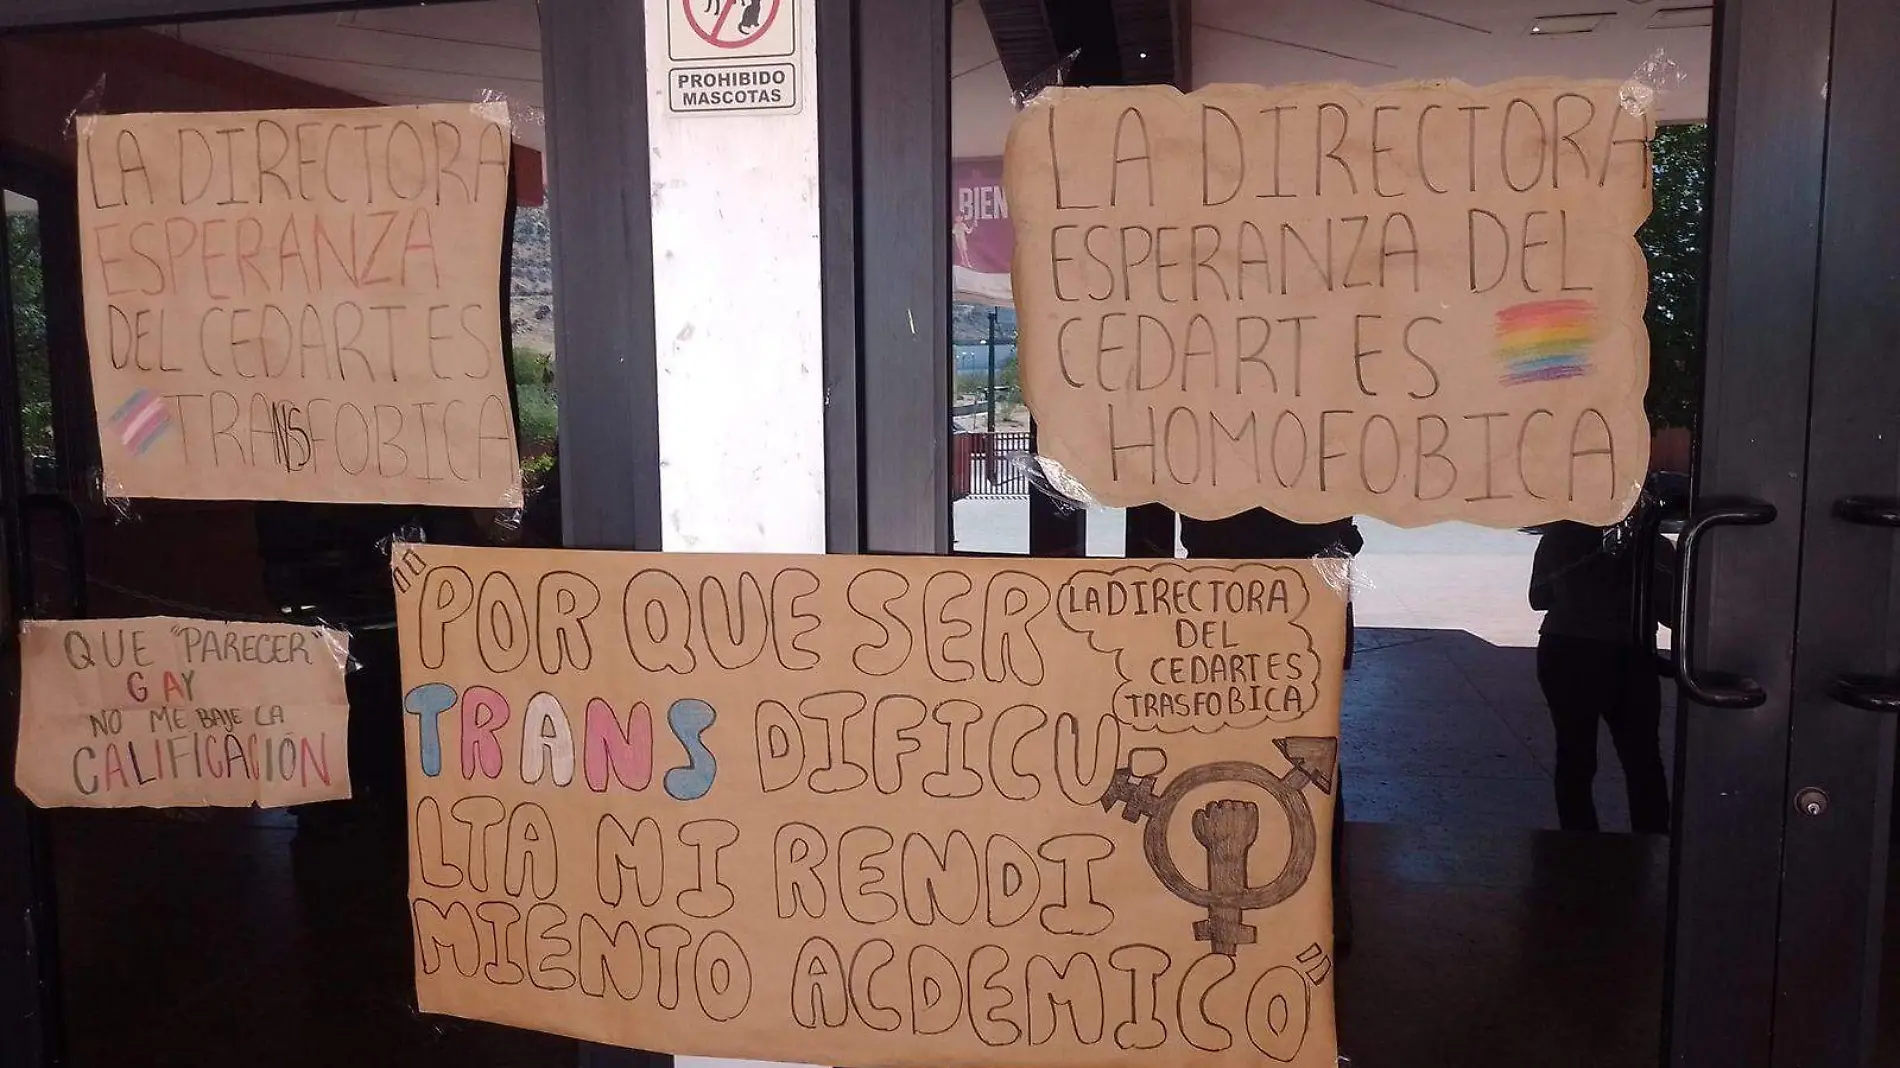 PROHIBIDO
MASCOTAS
LA DIRECTORA
ESPERANZA
DEL CEDART ES
TRANSFOBICA
BIEN
LA DIRECTORA
ESPERANZA DEL
CEDART ES
HOMOFOBICA
QUE "PARECER"
GAY
NO ME BAJE LA
CALIFICACIÓN
"POR QUE SER
TRANS DIFICU-
LTA MI RENDI
MIENTO ACDEMICO"
LA DIRECTORA
DEL
CEDART ES
TRASFOBICA